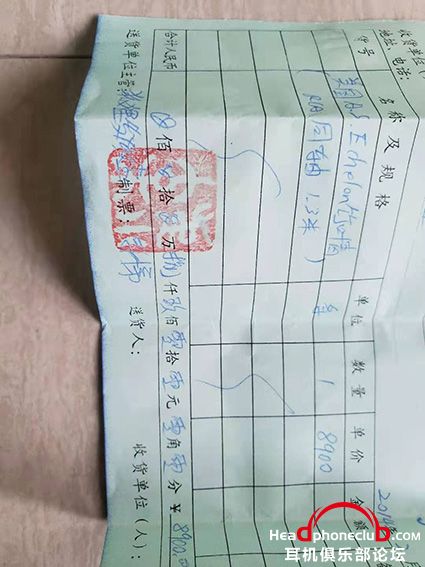 收货单位(
地址、电话:
2014年 月
货号 名称及规格 单位 数量 单价 金额
美国AS Echelon
同轴 1.3米 1 8900
合计人民币 佰 拾 万捌仟玖佰零拾零元零角零分 ¥ 8900.00
送货单位主管 制票: 送货人: 收货单位(人):
Headphoneclub.com
耳机俱乐部论坛